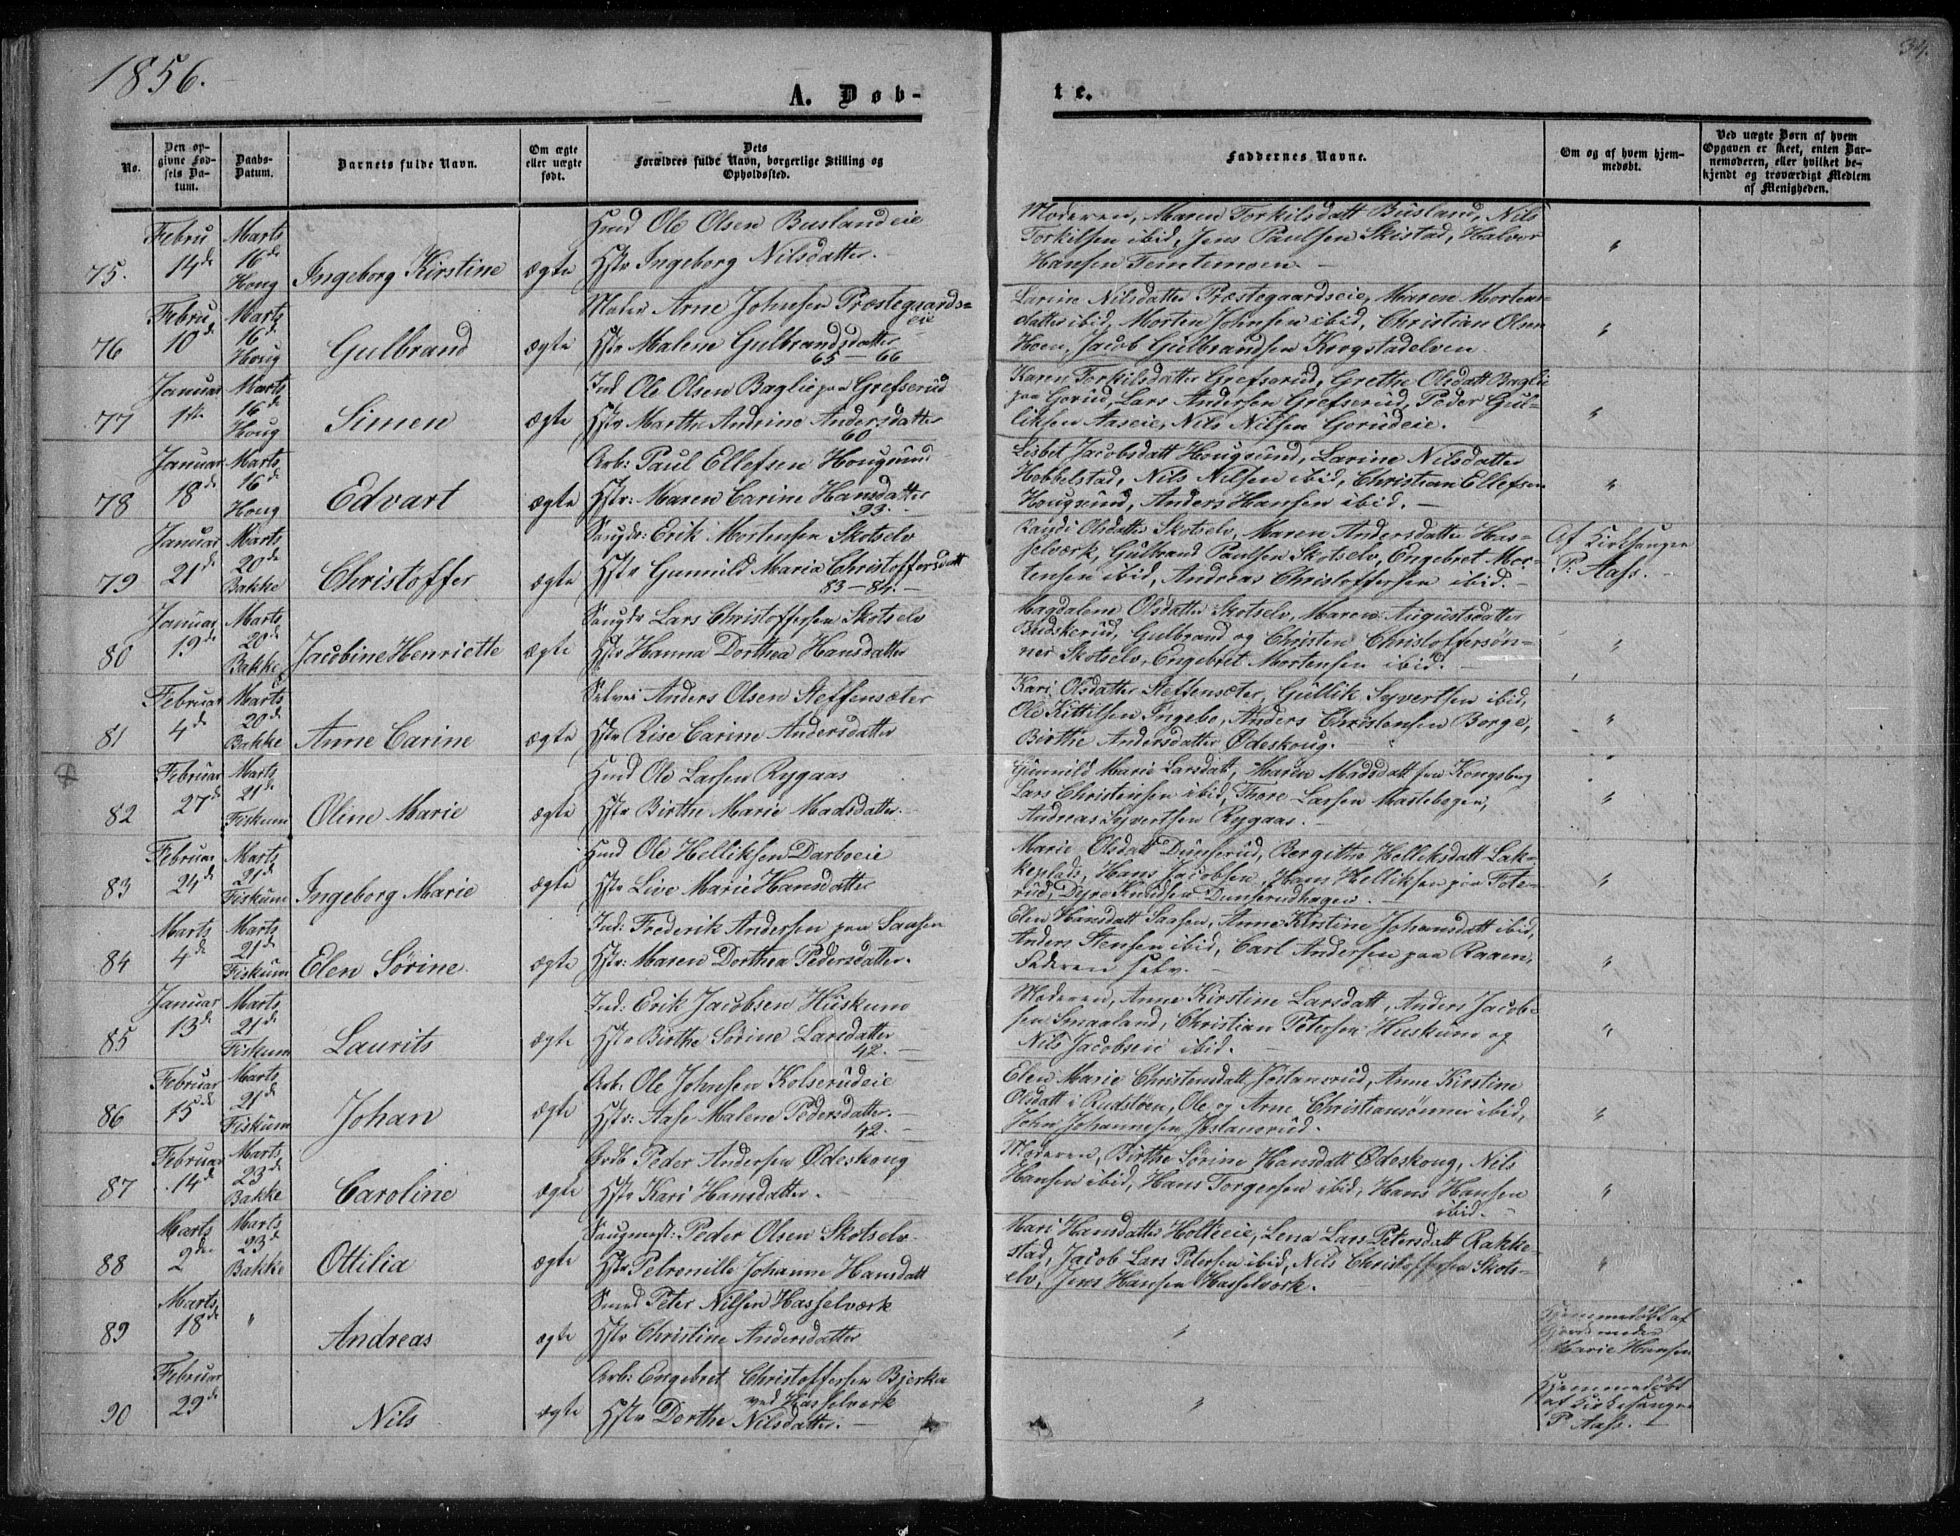 1856.
34.
A. Døb-
te.
No.
Den op-
givne Fød-
sels Da-
tum.
Daabs-
Datum.
Barnets fulde Navn.
Om ægte
eller uægte
født.
Dets
Forældres fulde Navn, borgerlige Stilling og
Opholdssted.
Faddernes Navne.
Om og af hvem hjem-
medøbt.
Ved uægte Børn af hvem
Opgaven er skeet, enten Bar-
nemoderen, eller hvilket be-
kjendt og troværdigt Medlem
af Menigheden.
75.
Febru
14de
Marts
16de
Houg
Ingeborg Kirstine
ægte
Husmd Ole Olsen Buslandeie
Hstr Ingeborg Nilsdatter.
Moderen, Maren Torkilsdatt Busland, Nils
Torkilsen ibid, Jens Paulsen Skistad, Halvor
Hansen Temtemoen. –
"
76
Febru
10de
Marts
16de
Houg
Gulbrand
ægte
Maler Arne Johnsen Præstegaards-
eie
Hstr Malene Gulbrandsdatter
65–66
Larine Nilsdatter Præstegaardseie, Maren Morten-
datter ibid, Morten Johnsen ibid, Christian Olsen
Hoen, Jacob Gulbrandsen Krogstadelven.
"
77
Januar
1ste
Marts
16de
Houg
Simen
ægte
Ind Ole Olsen Baglie paa Grefserud
Hstr Marthe Andrine Andersdatter
60
Karen Torkilsdatter Grefserud, Grethe Olsdatt Baglie
paa Gorud, Lars Andersen Grefserud, Peder Gul-
liksen Aaseie, Nils Nilsen Gorudeie.
"
78
Januar
18de
Marts
16de
Houg
Edvart
ægte
Arb: Paul Ellefsen Hougsund
Hstr: Maren Carine Hansdatter
93.
Lisbet Jacobsdatt Hougsund, Larine Nilsdatter
Hobbelstad, Nils Nilsen ibid, Christian Ellefsen
Hougsund, Anders Hansen ibid. –
"
79
Januar
21de
Marts
20de
Bakke
Christoffer
ægte
Saugdr: Erik Mortensen Skotselv
Hstr Gunnild Maria Christoffersdatt
83–84. –
Randi Olsdatter Skotselv, Maren Andersdatter Has-
selværk, Gulbrand Paulsen Skotselv, Engebret Mor-
tensen ibid, Andreas Christoffersen ibid. –
Af Kirkesanger
P. Aass. –
80
Januar
19de
Marts
20de
Bakke
Jacobine Henriette
ægte
Saugdr Lars Christoffersen Skotselv
Hstr Hanna Dorthea Hansdatter
Magdalene Olsdatter Skotselv, Maren Augustsdatter
Buskerud, Gulbrand og Christen Christoffersøn-
ner Skotselv, Engebret Mortensen ibid. –
"
81
Februar
4de
Marts
20de
Bakke
Anne Carine
ægte
Selvei Anders Olsen Steffensæter
Hstr Rise Carine Andersdatter
Kari Olsdatter Steffensæter, Gullik Syvertsen ibid,
Ole Kittilsen Ingebo, Anders Christensen Borge,
Birthe Andersdatter Ødeskoug. –
"
82
Februar
27de
Marts
21de
Fiskum
Oline Marie
ægte
Husmd Ole Larsen Rygaas
Hstr Birthe Marie Madsdatter.
Gunnild Marie Larsdatt, Maren Madsdatt fra Kongsberg
Lars Christensen ibid, Thore Larsen Mastebogen,
Andreas Syvertsen Rygaas. –
"
83
Februar
24de
Marts
21de
Fiskum
Ingeborg Marie
ægte
Husmd Ole Helliksen Darboeie
Hstr Live Marie Hansdatter
Marie Olsdatt Dunserud, Bergithe Helliksdatt Lak-
keplads, Hans Jacobsen, Hans Helliksen paa Fote-
rud, Dyre Knudsen Dunserudhagen. –
"
84
Marts
4de
Marts
21de
Fiskum
Elen Sørine.
ægte
Ind: Frederik Andersen paa Saasen
Hstr: Maren Dorthea Pedersdatter.
Elen Hansdatt Saasen, Anne Kirstine Johansdatt ibid,
Anders Stensen ibid, Carl Andersen paa Raaen,
Faderen selv. –
"
85
Januar
13de
Marts
21de
Fiskum
Laurits
ægte
Ind: Erik Jacobsen Huskum
Hstr Birthe Sørine Larsdatter
42. –
Moderen, Anne Kirstine Larsdatt, Anders Jacob-
sen Smaaland, Christian Petersen Huskum og
Nils Jacobsen ibid. –
"
86
Februar
15de
Marts
21de
Fiskum
Johan
ægte
Arb: Ole Johnsen Kolserudeie
Hstr: Aase Malene Pedersdatter. –
42. –
Elen Marie Christensdatt Jostansrud, Anne Kirstine
Olsdatt i Rudstøen, Ole og Arne Christiansønner ibid,
John Johannesen Jostansrud.
"
87
Februar
14de
Marts
23de
Bakke
Caroline
ægte
Arb Peder Andersen Ødeskoug
Hstr Kari Hansdatter.
Moderen, Birthe Sørine Hansdatt Ødeskoug, Nils
Hansen ibid, Hans Torgersen ibid, Hans Hansen
ibid. –
"
88
Marts
2den
Marts
23de
Bakke
Ottilia
ægte
Saugmest: Peder Olsen Skotselv
Hstr Petronille Johanne Hansdatt
Kari Hansdatter Holteeie, Lena Lars Petersdatt Rakke-
stad, Jacob Lars Petersen ibid, Nils Christoffersen Skots-
elv, Jens Hansen Hasselværk.
"
89
Marts
18de
"
Andreas
ægte
Smed Peter Nilsen Hasselværk
Hstr Christine Andersdatter
"
Hjemmedøbt af
Gjordemoder
Marie Hansen
90
Februar
29de
Nils
ægte
Arb: Engebret Christoffersen Bjerka
ved Hasselværk
Hstr Dorthe Nilsdatter. –
"
Hjemmedøbt
af Kirkesanger
P. Aass. –